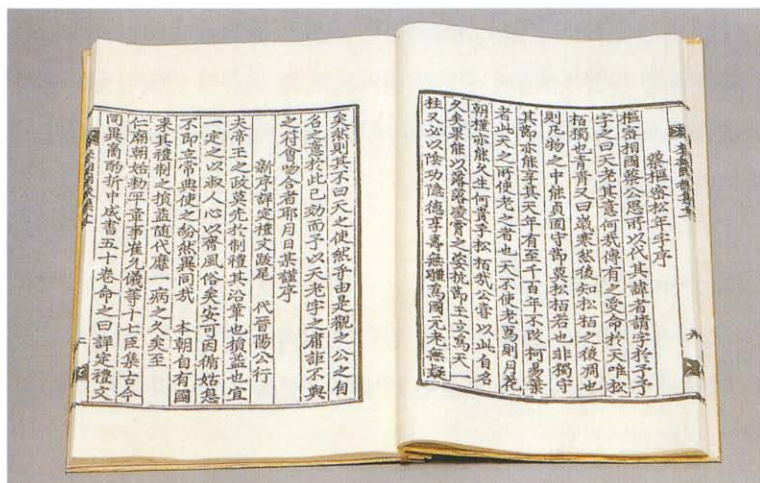 蔡樞密松年字序
樞密相國蔡公思所以代其諱者請字於予予
字之曰天老其意何哉傳有之受命於天唯松
栢獨也青青又曰歲寒然後知松栢之後凋也
則凡物之中能貞固守節莫松栢若也非獨守
其節亦能享其天年有至千百年不改柯易葉
者此天之所使老之者也天不使老焉則月花
朝槿亦能久生何貴乎松栢哉公嘗以此自名
久矣果能以落落凌霄之姿抗節玉立爲天一
柱又必以陰功隱德享壽無疆爲國元老無疑
矣然則其不曰天之使然乎由是觀之公之自
名之意於此已効而予以天老字之庸詎不與
之符會吻合者耶月日某謹序
新序詳定禮文跋尾 代晉陽公行
夫帝王之政莫先於制禮其沿革也損益也宜
一定之以淑人心以齊風俗矣安可因循姑息
不卽立常典使之紛然異同哉 本朝自有國
來其禮制之損益隨代靡一病之久矣至
仁廟朝始勅平章事崔允儀等十七臣集古今
同異商酌折中成書五十卷命之曰詳定禮文